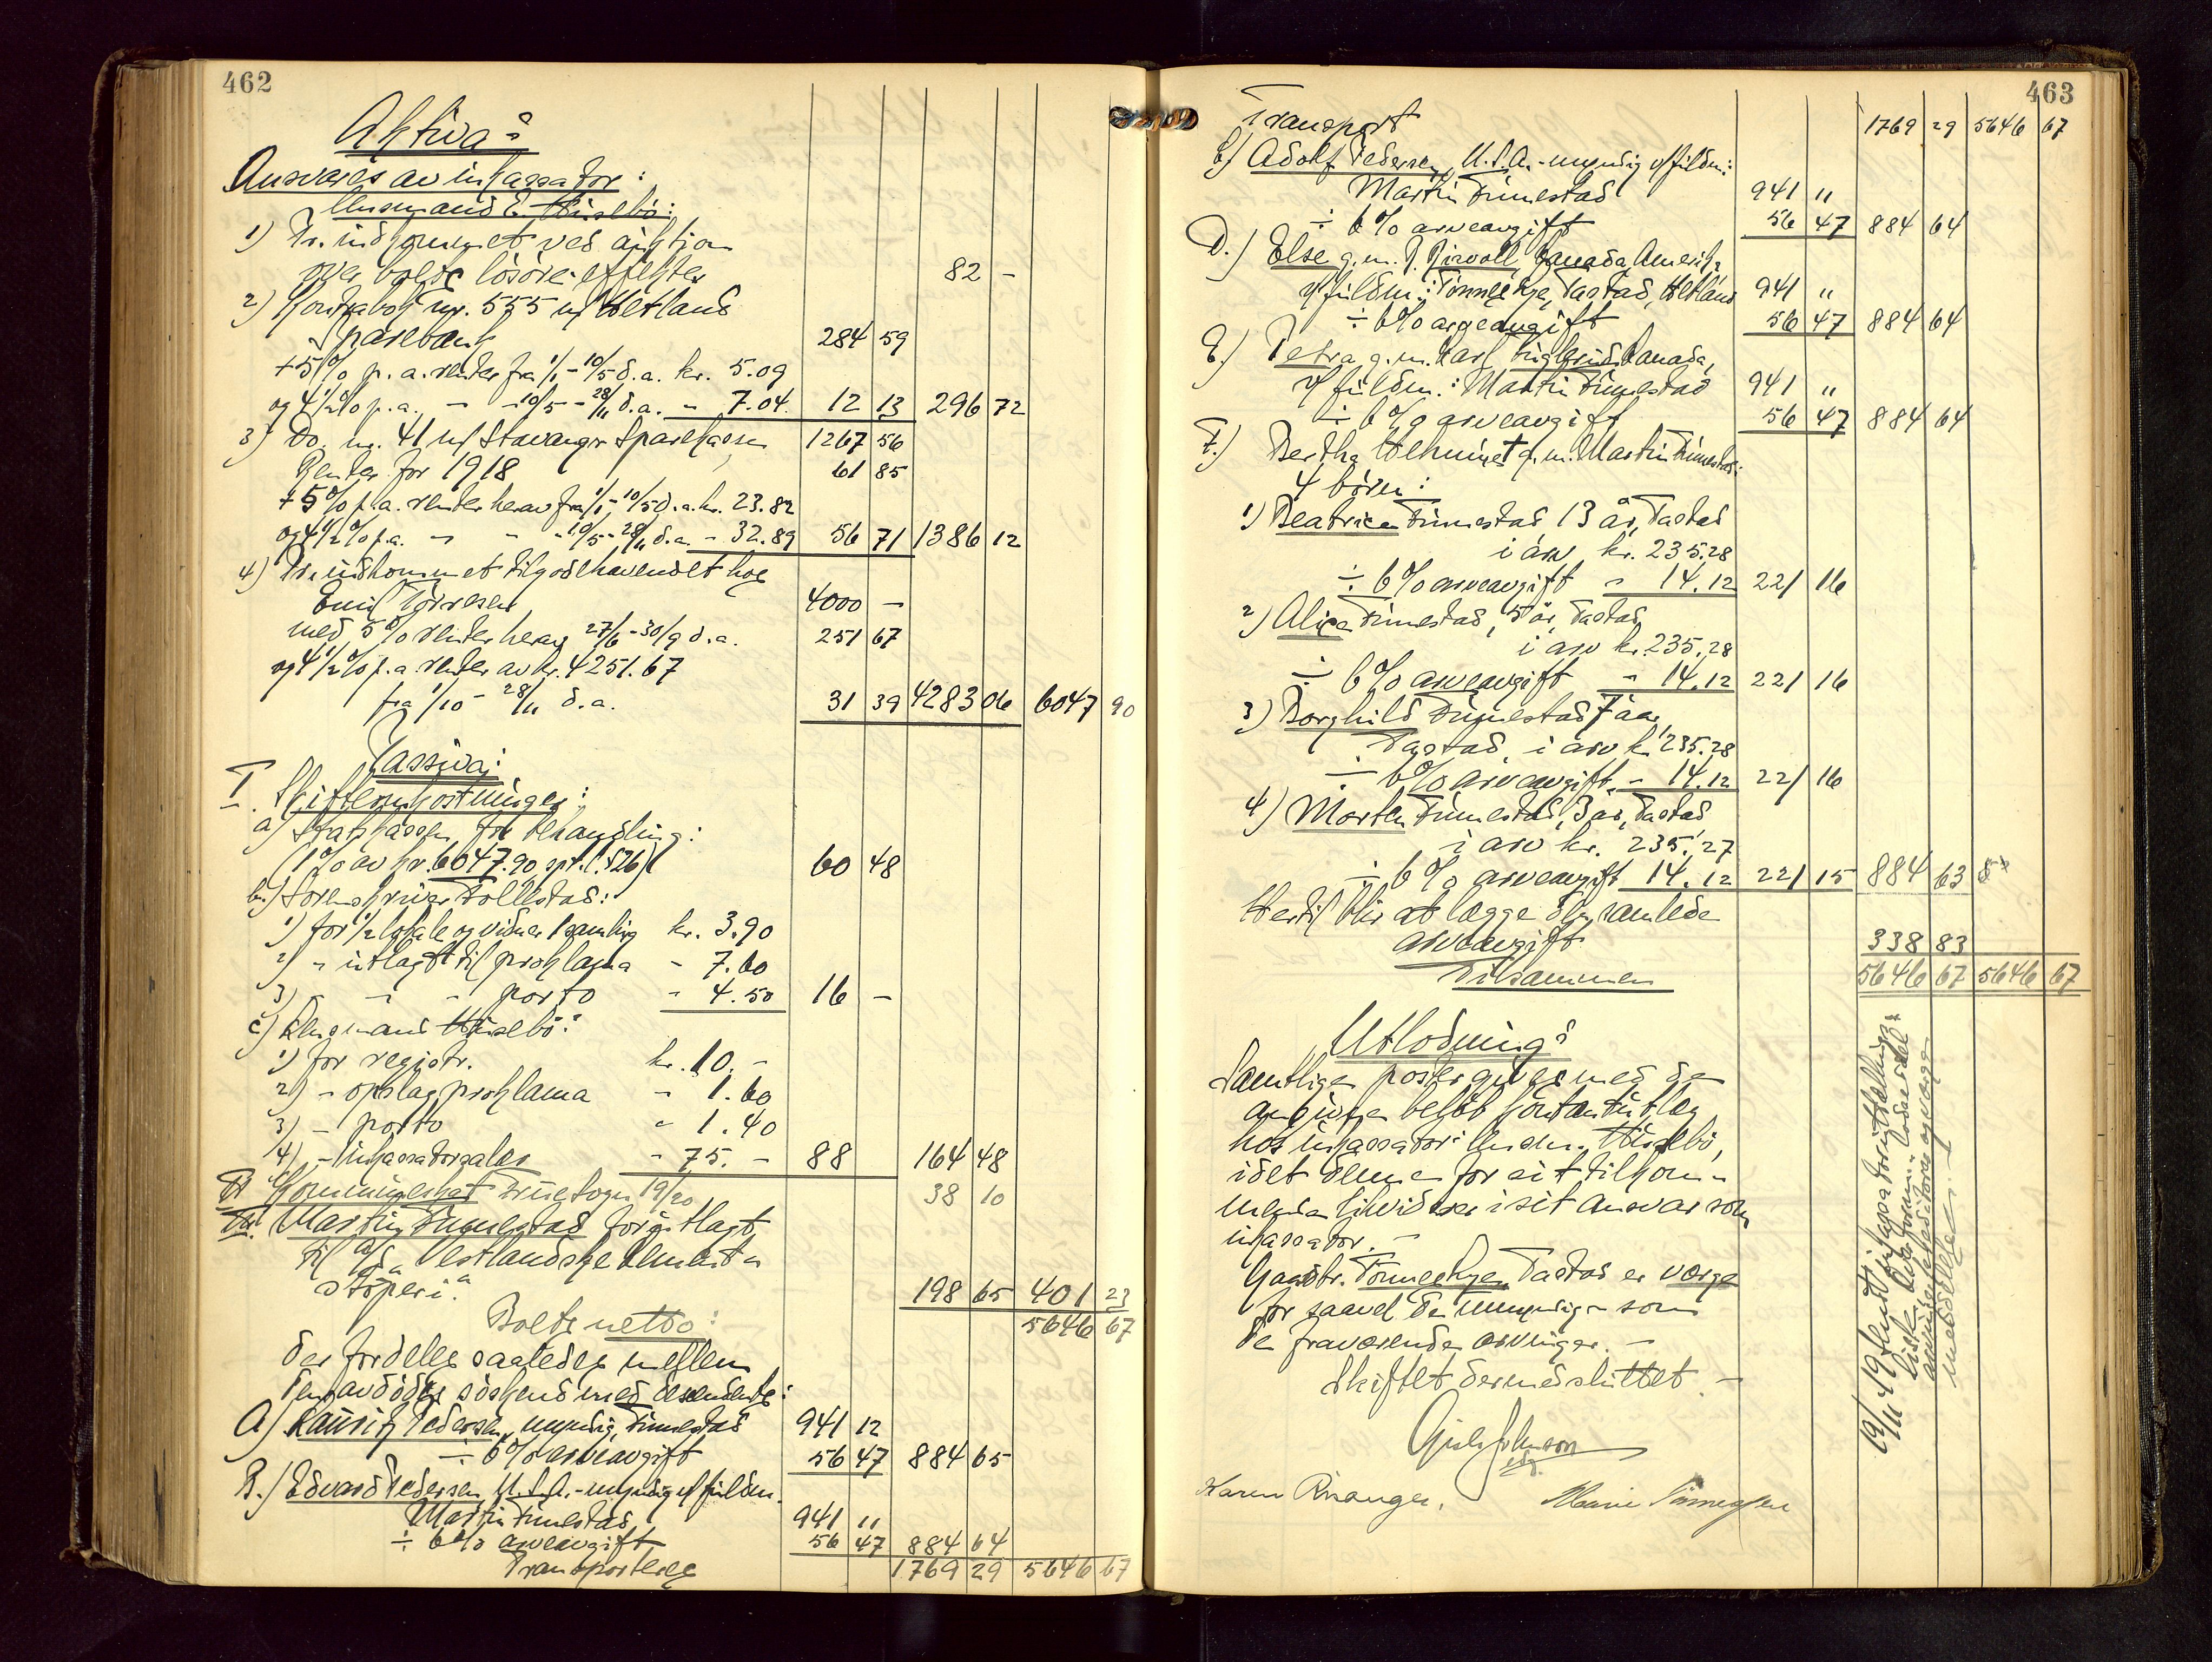 462
Aktiva:
Ansvares av inkassator:
Lensmand E. Husebø:
1) Pr. indkommet ved auktion
over bolets lösöre-effekter 82 -
2) Kontrabok nr. 555 m/ Hetland
Sparebank 284 59
+ 5% p. a. renter fra 1/1 - 10/5 d. a. kr. 5.09
og 4 1/2% p. a. - - 10/5 - 28/11 d. a. - 7.04. 12 13 296 72
3) Do. nr. 41 m/ Stavanger Sparekasse 1267 56
Renter for 1918 61 85
+ 5% p. a. renter herav fra 1/1 - 10/5 d. a. kr. 23.82
og 4 1/2% p. a. - - - 10/5 - 28/11 d. a. - 32.89 56 71 1386 12
4) Pr. indkommet tilgodehavendet hos
Emil Törresen 4000 -
med 5% renter herav 27/6 - 30/9 d. a. 251 67
og 4 1/2% p. a. renter av kr. 4251.67
fra 1/10 - 28/11 d. a. 31 39 4283 06 6047 90
Passiva:
I. Skifteomkostninger:
a) Statskassen for behandling:
(1% av kr. 6047.90, spl. l. § 26) 60 48
b.) Sorenskriver Tollestad:
1) for 1/2 lokale og vidner 1 samling kr. 3.90
2) - utlagt til proklama - 7.60
3) - - - porto - 4.50 16 -
c) Lensmand Husebø:
1) for registr. kr. 10. -
2) - opslag proklama - 1.60
3) - porto - 1.40
4) - inkassatorsalær - 75. - 88 164 48
II Kommuneskat 19/20 38 10
III. Martin Tunestad for utlagt
til a/s Vestlandske Cement-
støperi. 198 65 401 23
Bolets netto: 5646 67
der fordeles saaledes mellem
den avdødes søskend med descendenter:
A) Lauritz Pedersen, myndig, Tunestad 941 12
÷ 6% arveavgift 56 47 884 65
B.) Edvard Pedersen, U. S. A. - myndig v/ fuldm.
Martin Tunestad 941 "
÷ 6% arveavgift 56 47 884 64
Transporteres 1769 29 5646 67
463
Transport 1769 29 5646 67
C) Adolf Pedersen, U. S. A. - myndig v/ fuldm:
Martin Tunestad 941 "
÷ 6% arveavgift 56 47 884 64
D.) Else g. m. Canada, Amerika
v/ fuldm.: Tönnes Kye, Tastad, Hetland 941 "
÷ 6% arveavgift 56 47 884 64
E.) Petra g. m. Karl Canada,
v/ fuldm.: Martin Tunestad 941 "
÷ 6% arveavgift 56 47 884 64
F.) Bertha Velhumine † g. m. Martin Tunestad:
4 börn:
1) Beatrice Tunestad 13 år, Tastad
i arv kr. 235.28
÷ 6% arveavgift - 14.12 221 16
2) Alice Tunestad, 5 år, Tastad
i arv kr. 235.28
÷ 6% arveavgift - 14.12 221 16
3) Borghild Tunestad 7 aar,
Tastad, i arv kr. 235.28
÷ 6% arveavgift - 14.12 221 16
4) Morten Tunestad, 3 år, Tastad
i arv kr. 235.27
÷ 6% arveavgift 14.12 221 15 884 63
Hertil blir at lægge den samlede
arveavgift 338 83
Tilsammen 5646 67 5646 67
Utlodning:
Samtlige poster gives med de
angivne beløb kontant utlæg
hos inkassator: lensm. Husebø,
idet denne for sit tilkom-
mende likviderer i sit ansvar som
inkassator. -
Gaardbr. Tönnes Kye, Tastad er værge
for saavel de umyndige som
de fraværende arvinger. -
Skiftet dermed sluttet. -
Karen Risanger. Marie Tönnesen
19/11 19 sendt inkassatorutskrift
arvinger, kreditorer og værge
meddelelse.